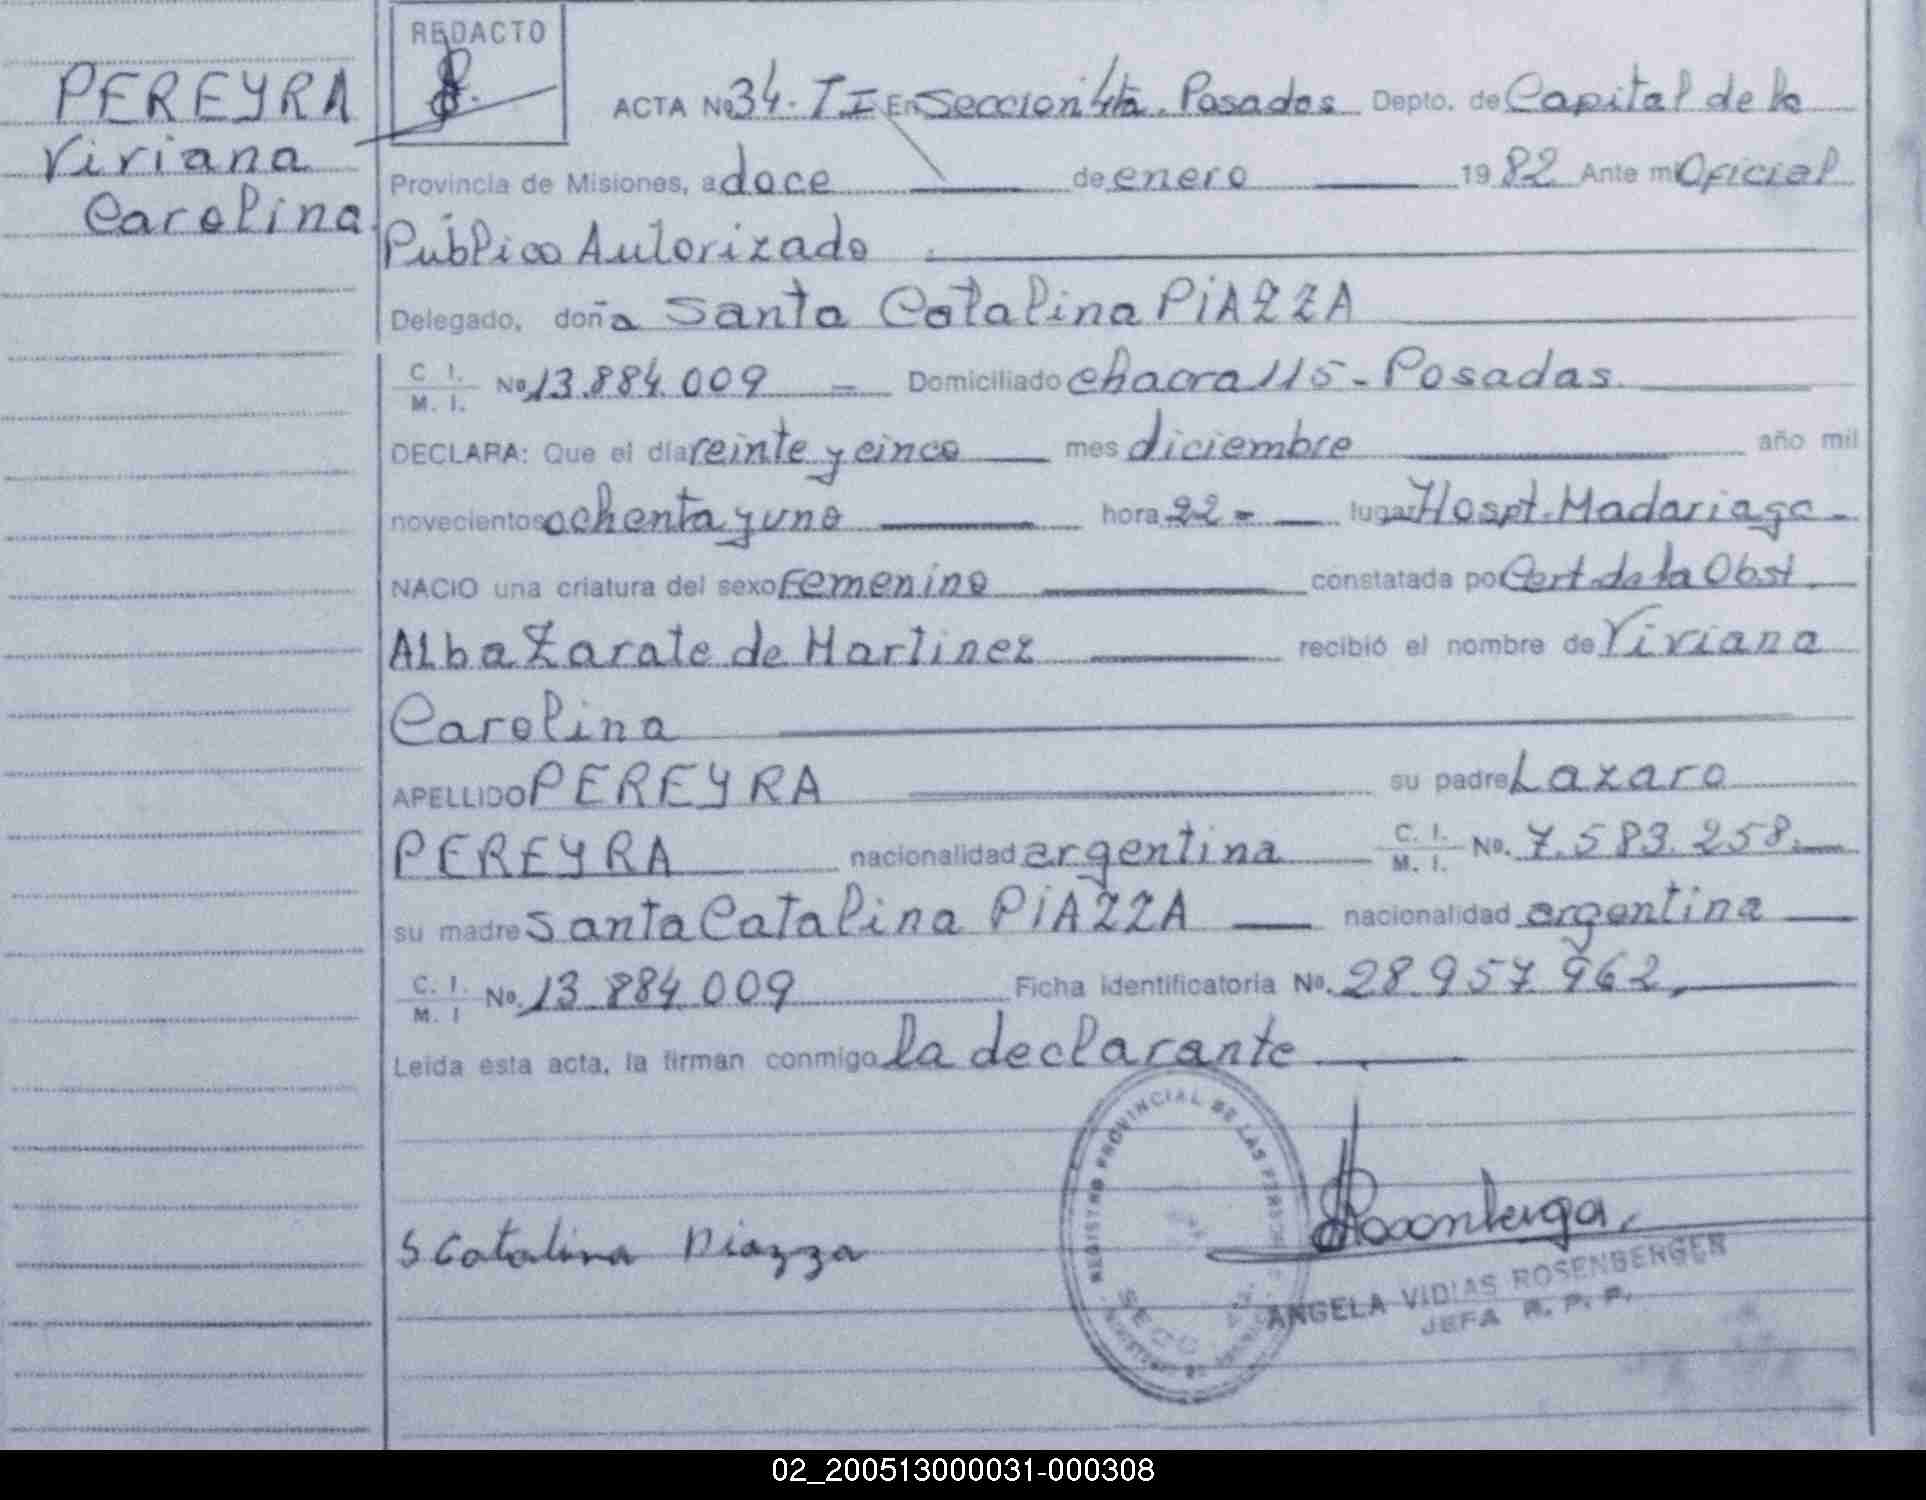 PEREYRA
Viviana
Carolina
REDACTO
ACTA Nº 34. T I En Seccion 4ta. Posadas Depto. de Capital de la
Provincia de Misiones, a doce de enero 1982 Ante mi Oficial
Público Autorizado
Delegado, doña Santa Catalina PiAZZA
C I. M. I. Nº 13.884.009 Domiciliado chacra 115 - Posadas
DECLARA: Que el día veinte y cinco mes diciembre año mil
novecientos ochenta y uno hora 22 - lugar Hospt. Madariaga -
NACIO una criatura del sexo Femenino constatada po Cert. de la Obst.
Alba Zarate de Martinez recibió el nombre de Viviana
Carolina
APELLIDO PEREYRA su padre Lazaro
PEREYRA nacionalidad argentina C. I. M. I. Nº. 7.583.258.
su madre Santa Catalina PiAZZA nacionalidad argentina
C. I. M. I Nº. 13.884.009 Ficha identificatoria Nº. 28.957.962.
Leída esta acta, la firman conmigo la declarante
REGISTRO PROVINCIAL DE LAS PERSONAS
S Catalina Piazza
ANGELA VIDIAS ROSENBERGER
JEFA R. P. P.
02_200513000031-000308